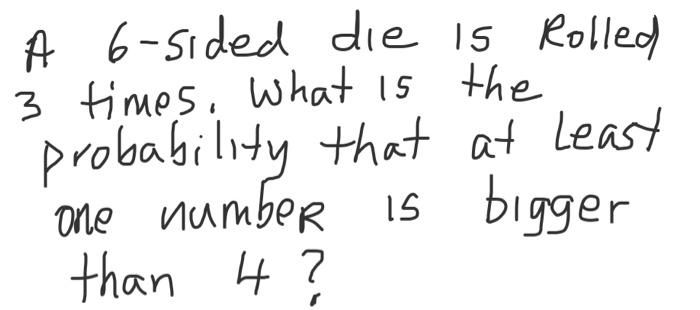 A 6-sided die is Rolled
3 times. What is the
probability that at Least
one number is bigger
than 4?